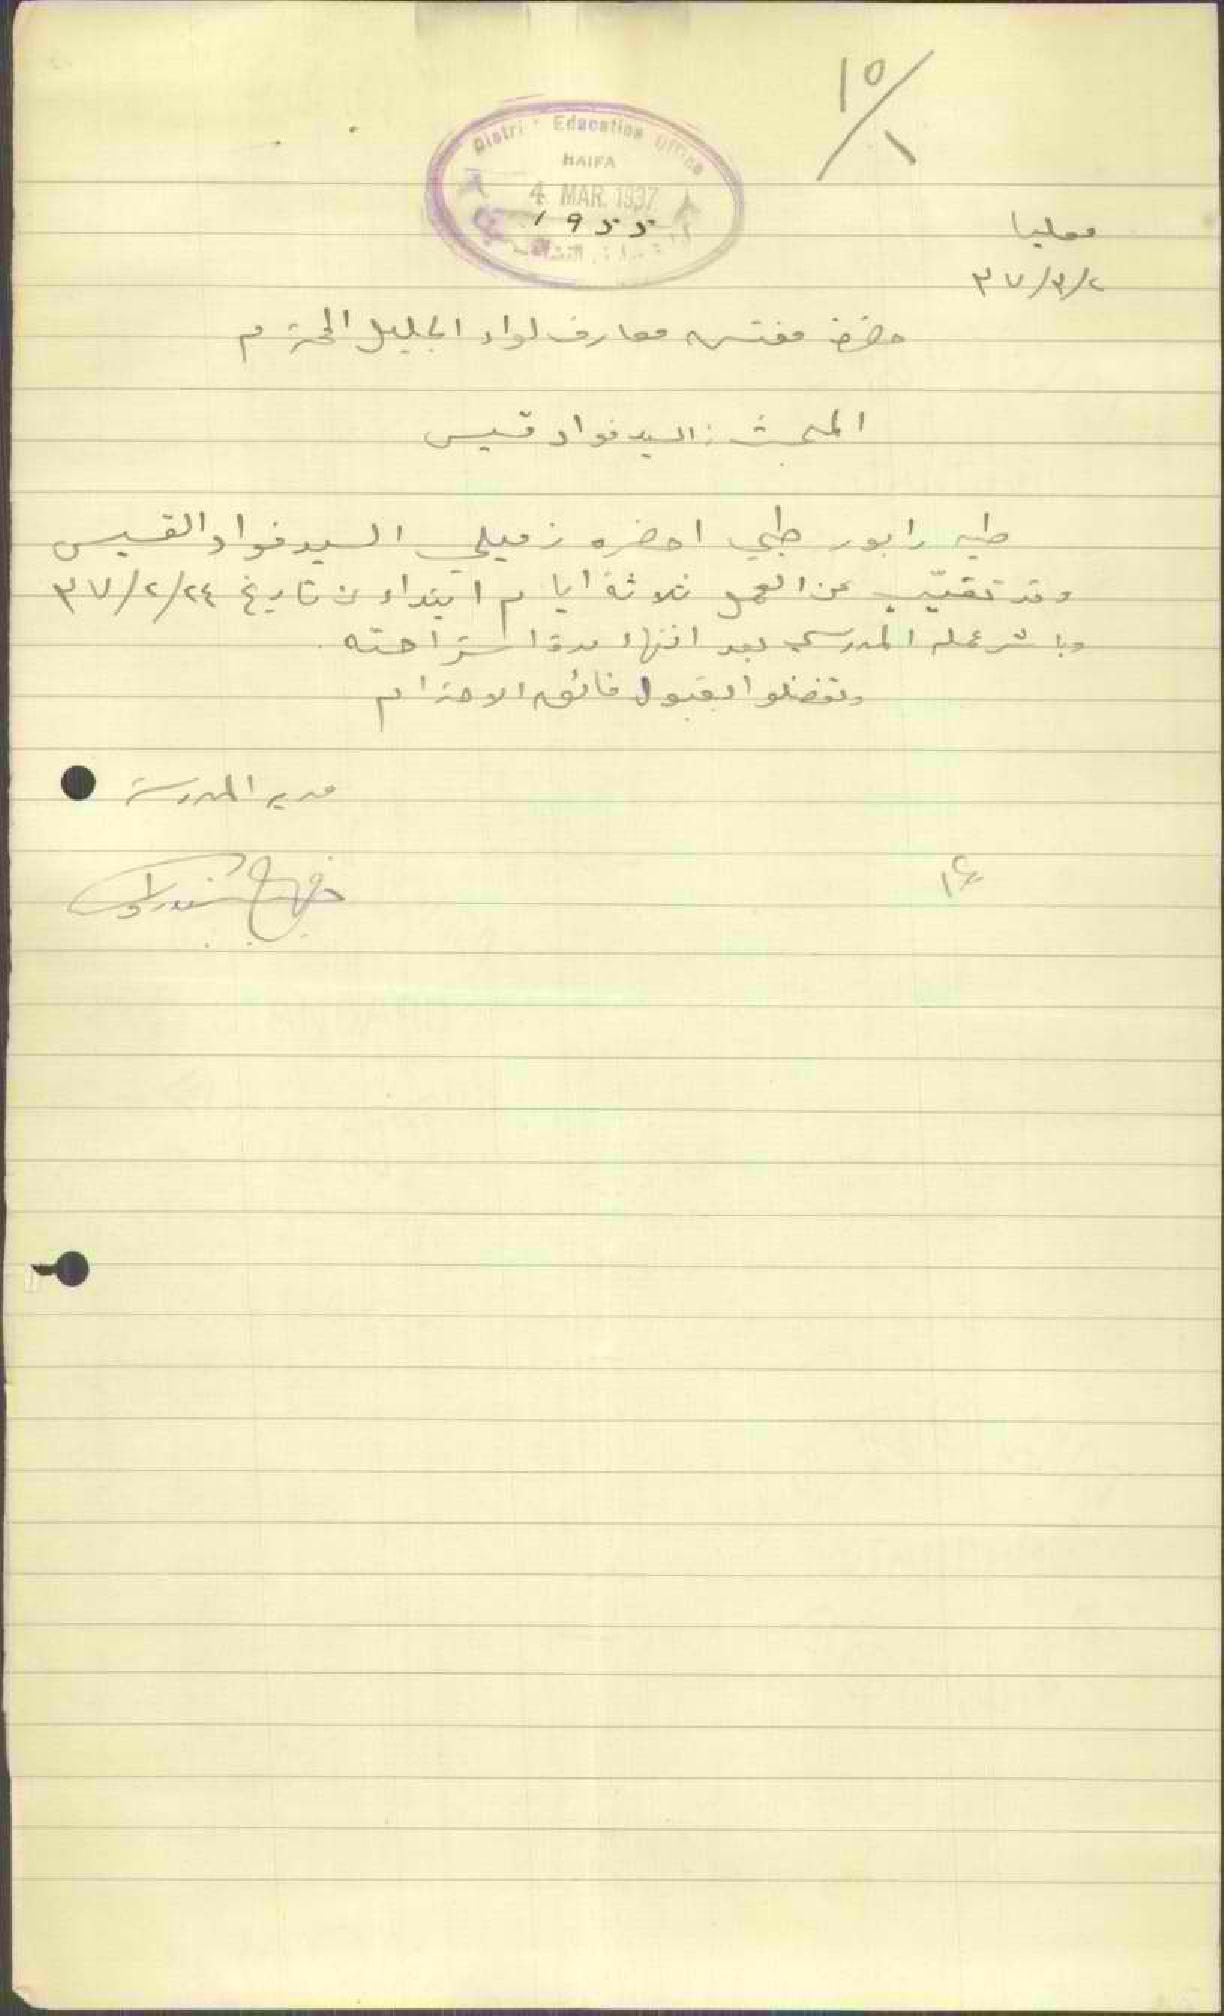 ١٥/١
District Education Office
HAIFA
4 MAR. 1937
معليا
٣٧/٣/٢
حضرة مفتش معارف لواء الجليل المحترم
المبحث : السيد فؤاد قسيس
طيه رابور طبي احضره زميلي السيد فؤاد القسيس
وقد تغيّب عن العمل ثلاثة ايام ابتداء من تاريخ ٣٧/٢/٢٤
وباشر عمله المدرسي بعد انتهاء مدة استراحته .
وتفضلوا بقبول فائق الاحترام
مدير المدرسة